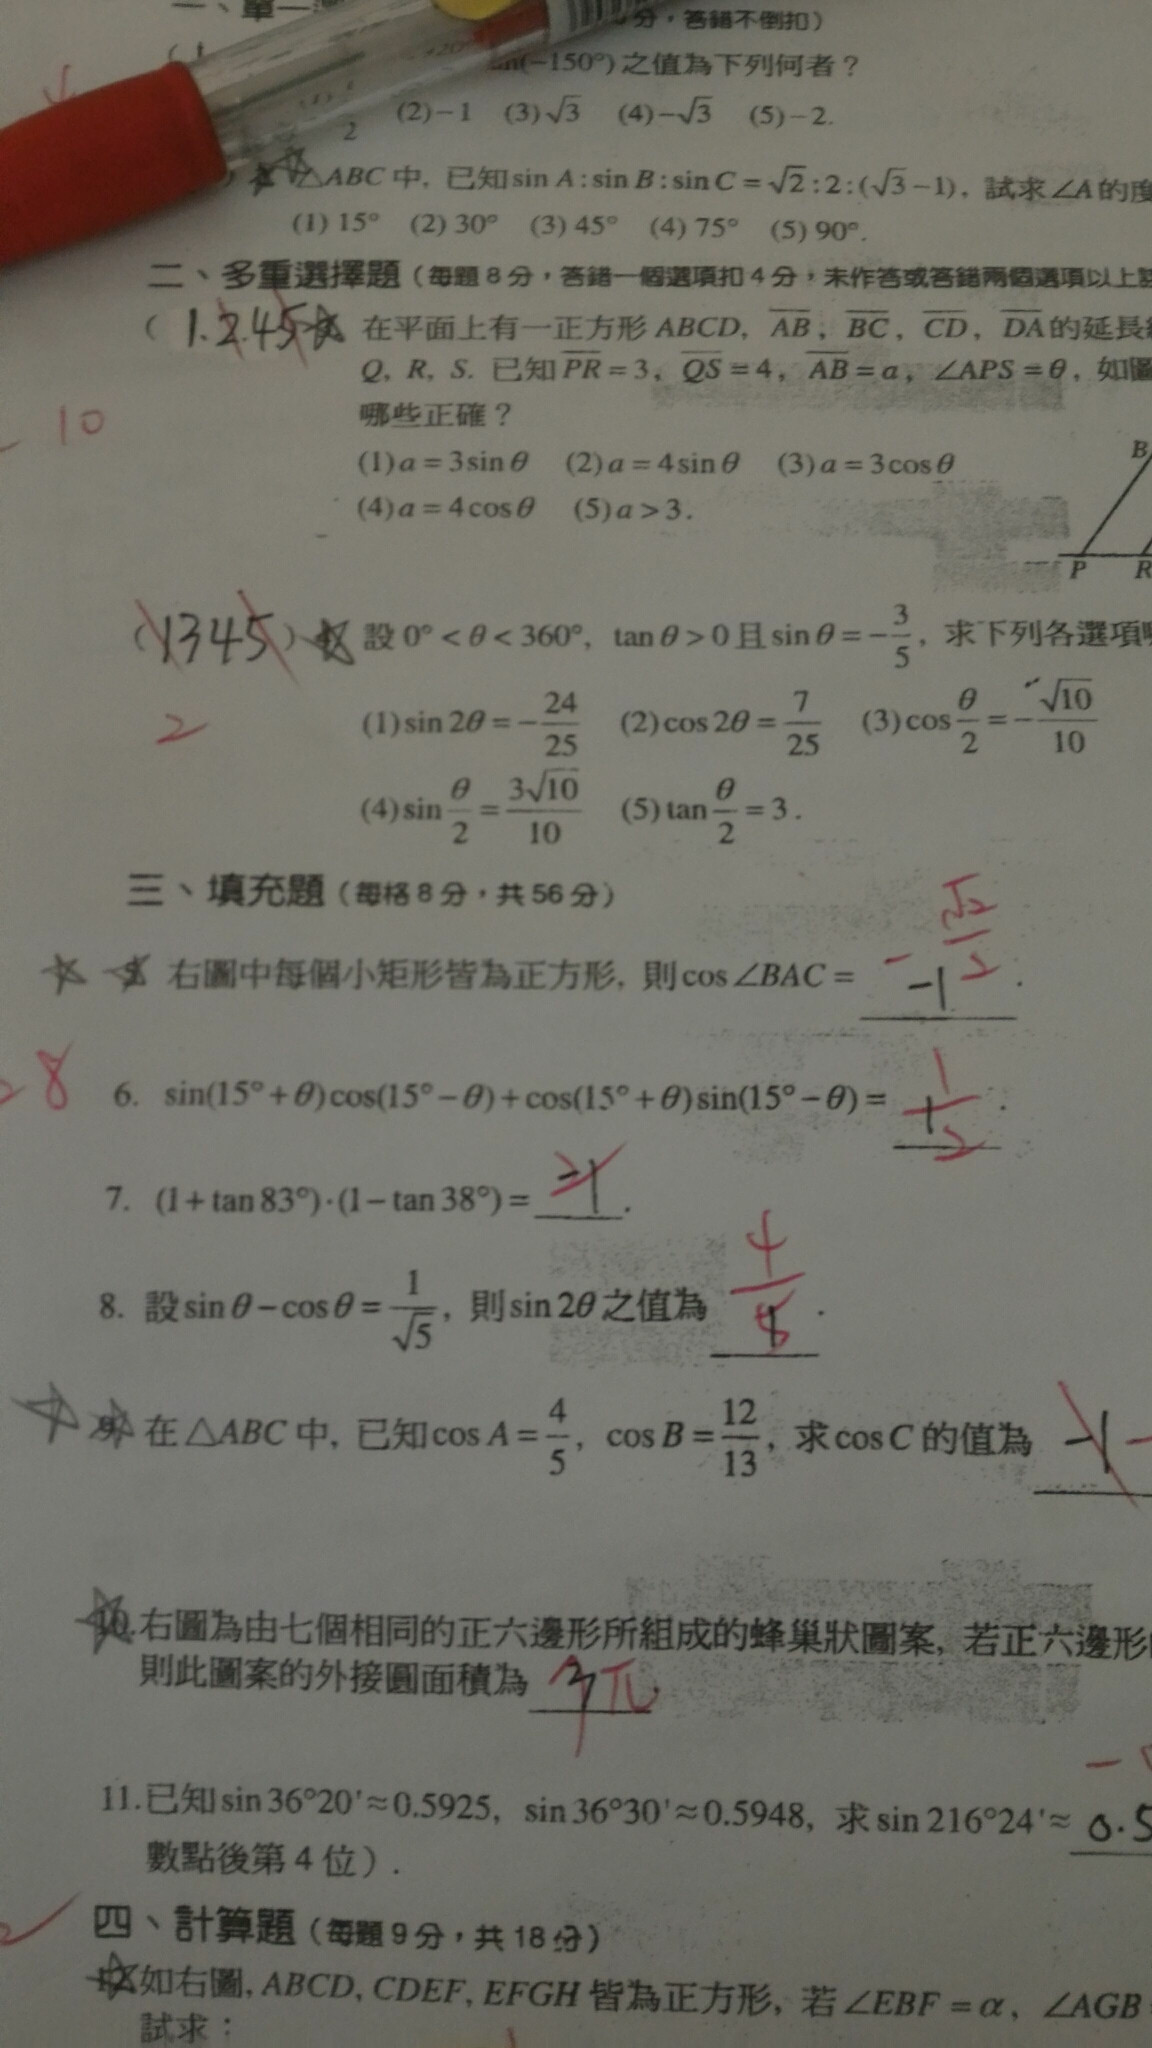 一、單一
分，答錯不倒扣）
(−150°)之值為下列何者？
2 (2)−1 (3)√3 (4)−√3 (5)−2.
△ABC中, 已知sin A:sin B:sin C=√2:2:(√3−1), 試求∠A的度
(1)15° (2)30° (3)45° (4)75° (5)90°.
二、多重選擇題（每題8分，答錯一個選項扣4分，未作答或答錯兩個選項以上
( 1.2.45 在平面上有一正方形ABCD, AB, BC, CD, DA的延長
Q, R, S. 已知PR=3, QS=4, AB=a, ∠APS=θ, 如圖
10 哪些正確？
(1)a=3sinθ (2)a=4sinθ (3)a=3cosθ
B
(4)a=4cosθ (5)a>3.
P R
(1345) 設0°<θ<360°, tanθ>0且sinθ=−3/5, 求下列各選項
2 (1)sin2θ=−24/25 (2)cos2θ=7/25 (3)cos θ/2=−√10/10
(4)sin θ/2=3√10/10 (5)tan θ/2=3.
三、填充題（每格8分，共56分）
右圖中每個小矩形皆為正方形, 則cos∠BAC= −1 −√2/2 .
8 6. sin(15°+θ)cos(15°−θ)+cos(15°+θ)sin(15°−θ)= 1 1/2 .
7. (1+tan83°)·(1−tan38°)= −1 2 .
8. 設sinθ−cosθ=1/√5, 則sin2θ之值為 1 4/5 .
在△ABC中, 已知cos A=4/5, cos B=12/13, 求cos C的值為 −1 −
10.右圖為由七個相同的正六邊形所組成的蜂巢狀圖案, 若正六邊形
則此圖案的外接圓面積為 π .
11.已知sin36°20'≈0.5925, sin36°30'≈0.5948, 求sin216°24'≈ 0.5
數點後第4位）.
四、計算題（每題9分，共18分）
如右圖, ABCD, CDEF, EFGH皆為正方形, 若∠EBF=α, ∠AGB
試求：